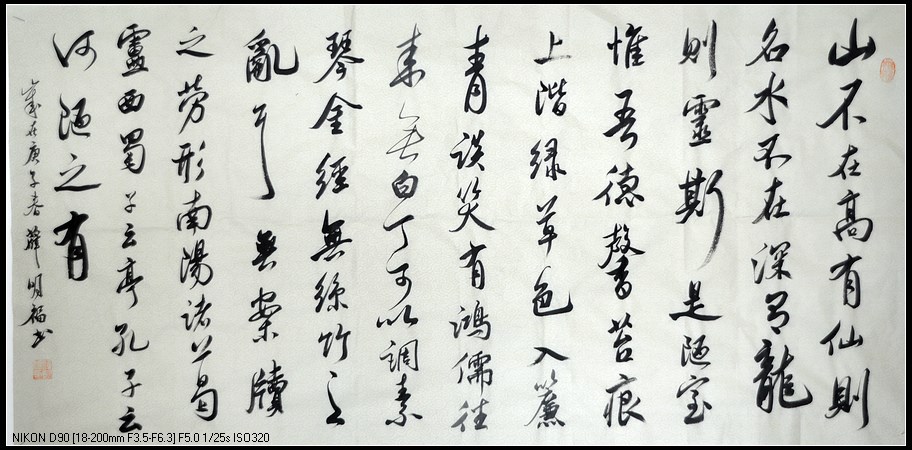 山不在高有仙則
名水不在深有龍
則靈斯是陋室
惟吾德馨苔痕
上階綠草色入簾
青談笑有鴻儒往
来無白丁可以調素
琴金經無絲竹之
亂耳無案牘
之勞形南陽諸葛
靈西蜀子云亭孔子云
何陋之有
歲在庚子春薛明福书
NIKON D90 [18-200mm F3.5-F6.3] F5.0 1/25s ISO320